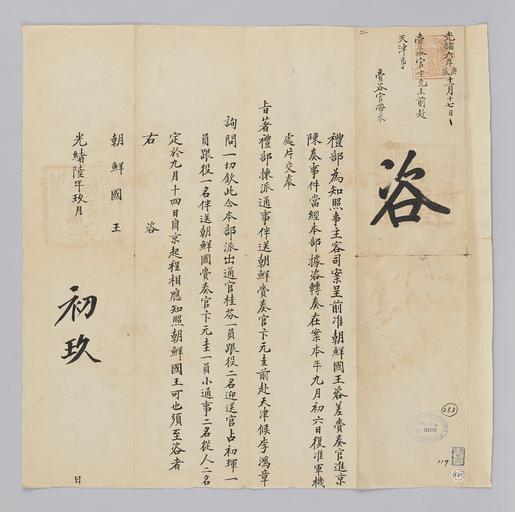 光緒六年十一月十七日
賫咨官卞元圭前赴
天津事
賫咨官帶來
咨
禮部為知照事主客司案呈前准朝鮮國王咨差賫奏官進京
陳奏事件當經本部據咨轉奏在案本年九月初六日復准軍機
處片交奉
旨著禮部揀派通事伴送朝鮮賫奏官卞元圭前赴天津候李鴻章
詢問一切欽此今本部派出通官桂芬一員跟役二名迎送官占初琿一
員跟役一名伴送朝鮮國賫奏官卞元圭一員小通事二名從人二名
定於九月十四日自京起程相應知照朝鮮國王可也須至咨者
右咨
朝鮮國王
光緒陸年玖月
初玖
日
253
117